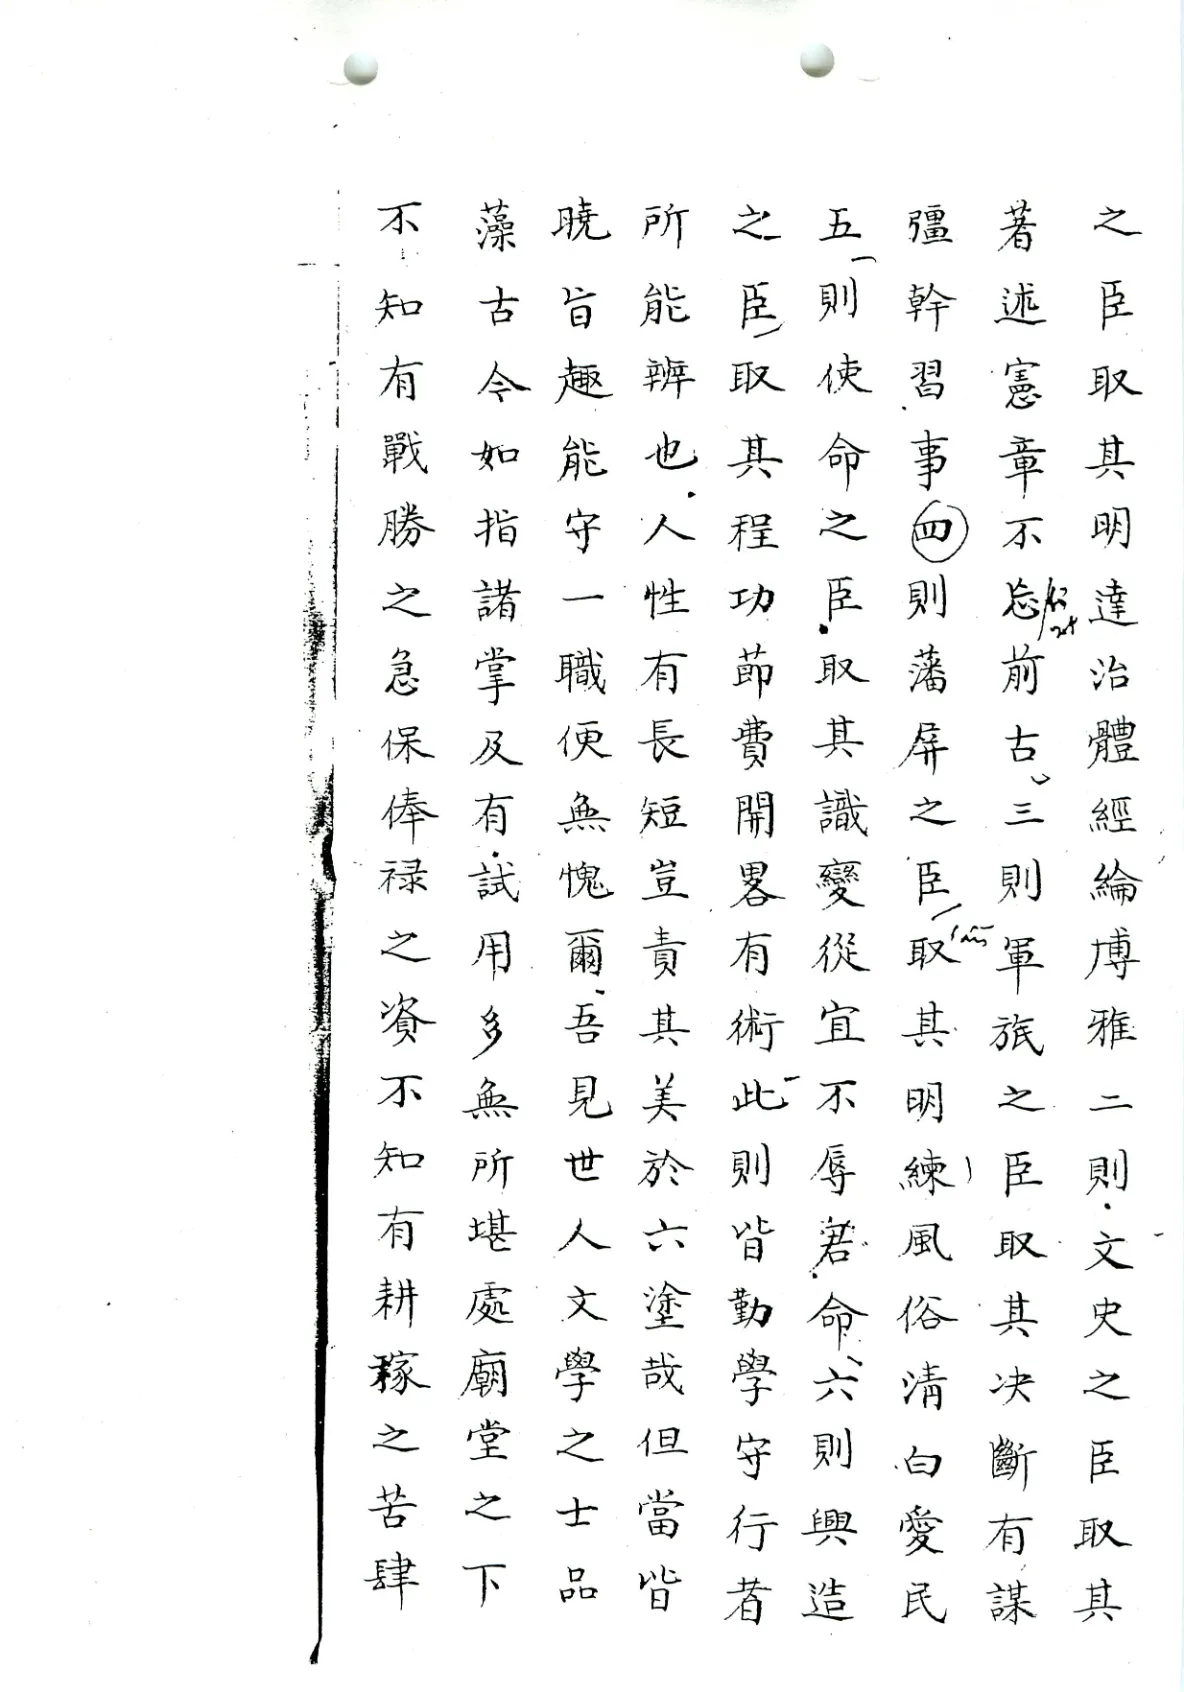 之臣取其明達治體經綸博雅二則文史之臣取其
著述憲章不忘前古三則軍旅之臣取其决斷有謀
彊幹習事四則藩屏之臣取其明練風俗清白愛民
五則使命之臣取其識變從宜不辱君命六則興造
之臣取其程功節費開畧有術此則皆勤學守行者
所能辨也人性有長短豈責其美於六塗哉但當皆
曉旨趣能守一職便無愧爾吾見世人文學之士品
藻古今如指諸掌及有試用多無所堪處廟堂之下
不知有戰勝之急保俸禄之資不知有耕稼之苦肆